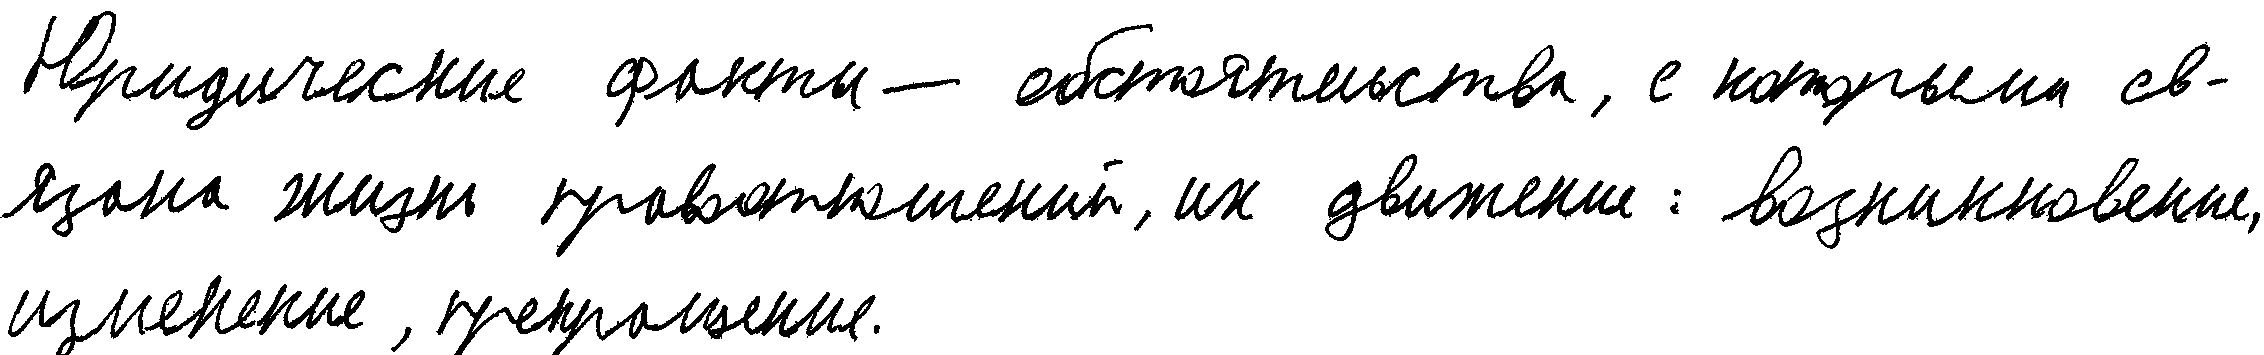 Юридические факты — обстоятельства, с которыми св-
язана жизнь правоотношений, их движение: возникновение,
изменение, прекращение.